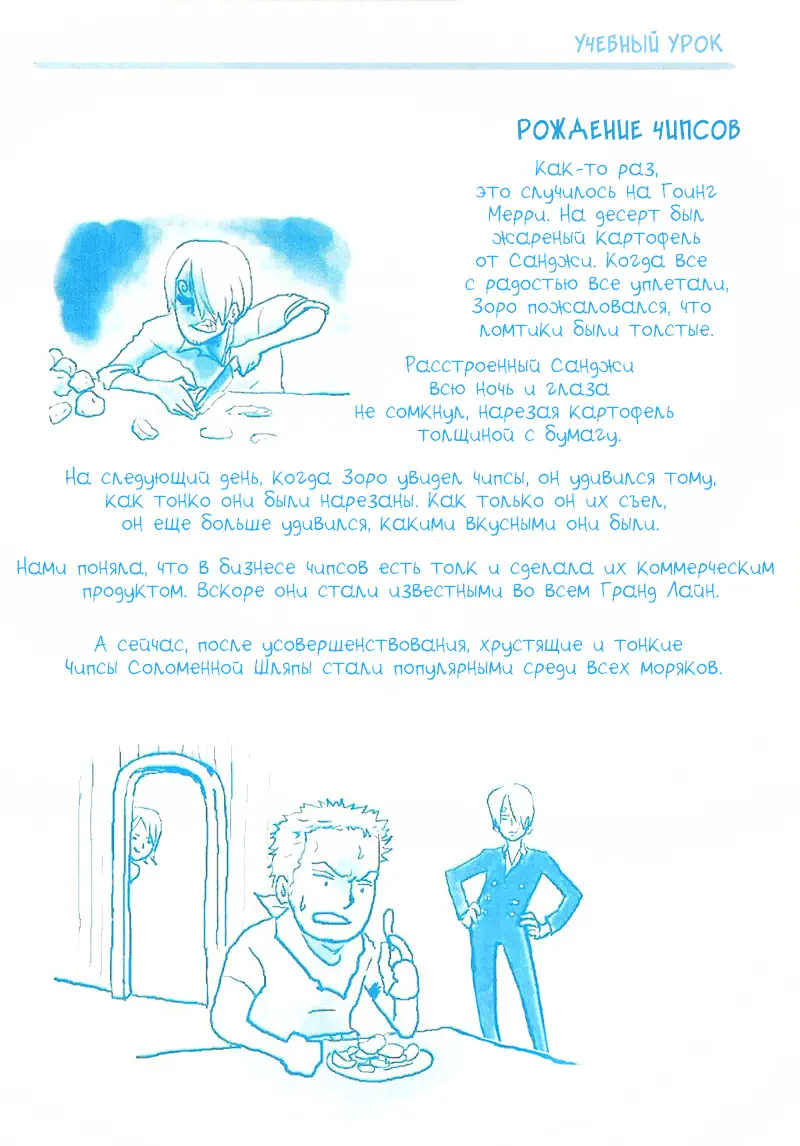 УЧЕБНЫЙ УРОК
РОЖДЕНИЕ ЧИПСОВ
Как-то раз,
это случилось на Гоинг
Мерри. На десерт был
жареный картофель
от Санджи. Когда все
с радостью все уплетали,
Зоро пожаловался, что
ломтики были толстые.
Расстроенный Санджи
всю ночь и глаза
не сомкнул, нарезая картофель
толщиной с бумагу.
На следующий день, когда Зоро увидел чипсы, он удивился тому,
как тонко они были нарезаны. Как только он их съел,
он еще больше удивился, какими вкусными они были.
Нами поняла, что в бизнесе чипсов есть толк и сделала их коммерческим
продуктом. Вскоре они стали известными во всем Гранд Лайн.
А сейчас, после усовершенствования, хрустящие и тонкие
чипсы Соломенной Шляпы стали популярными среди всех моряков.